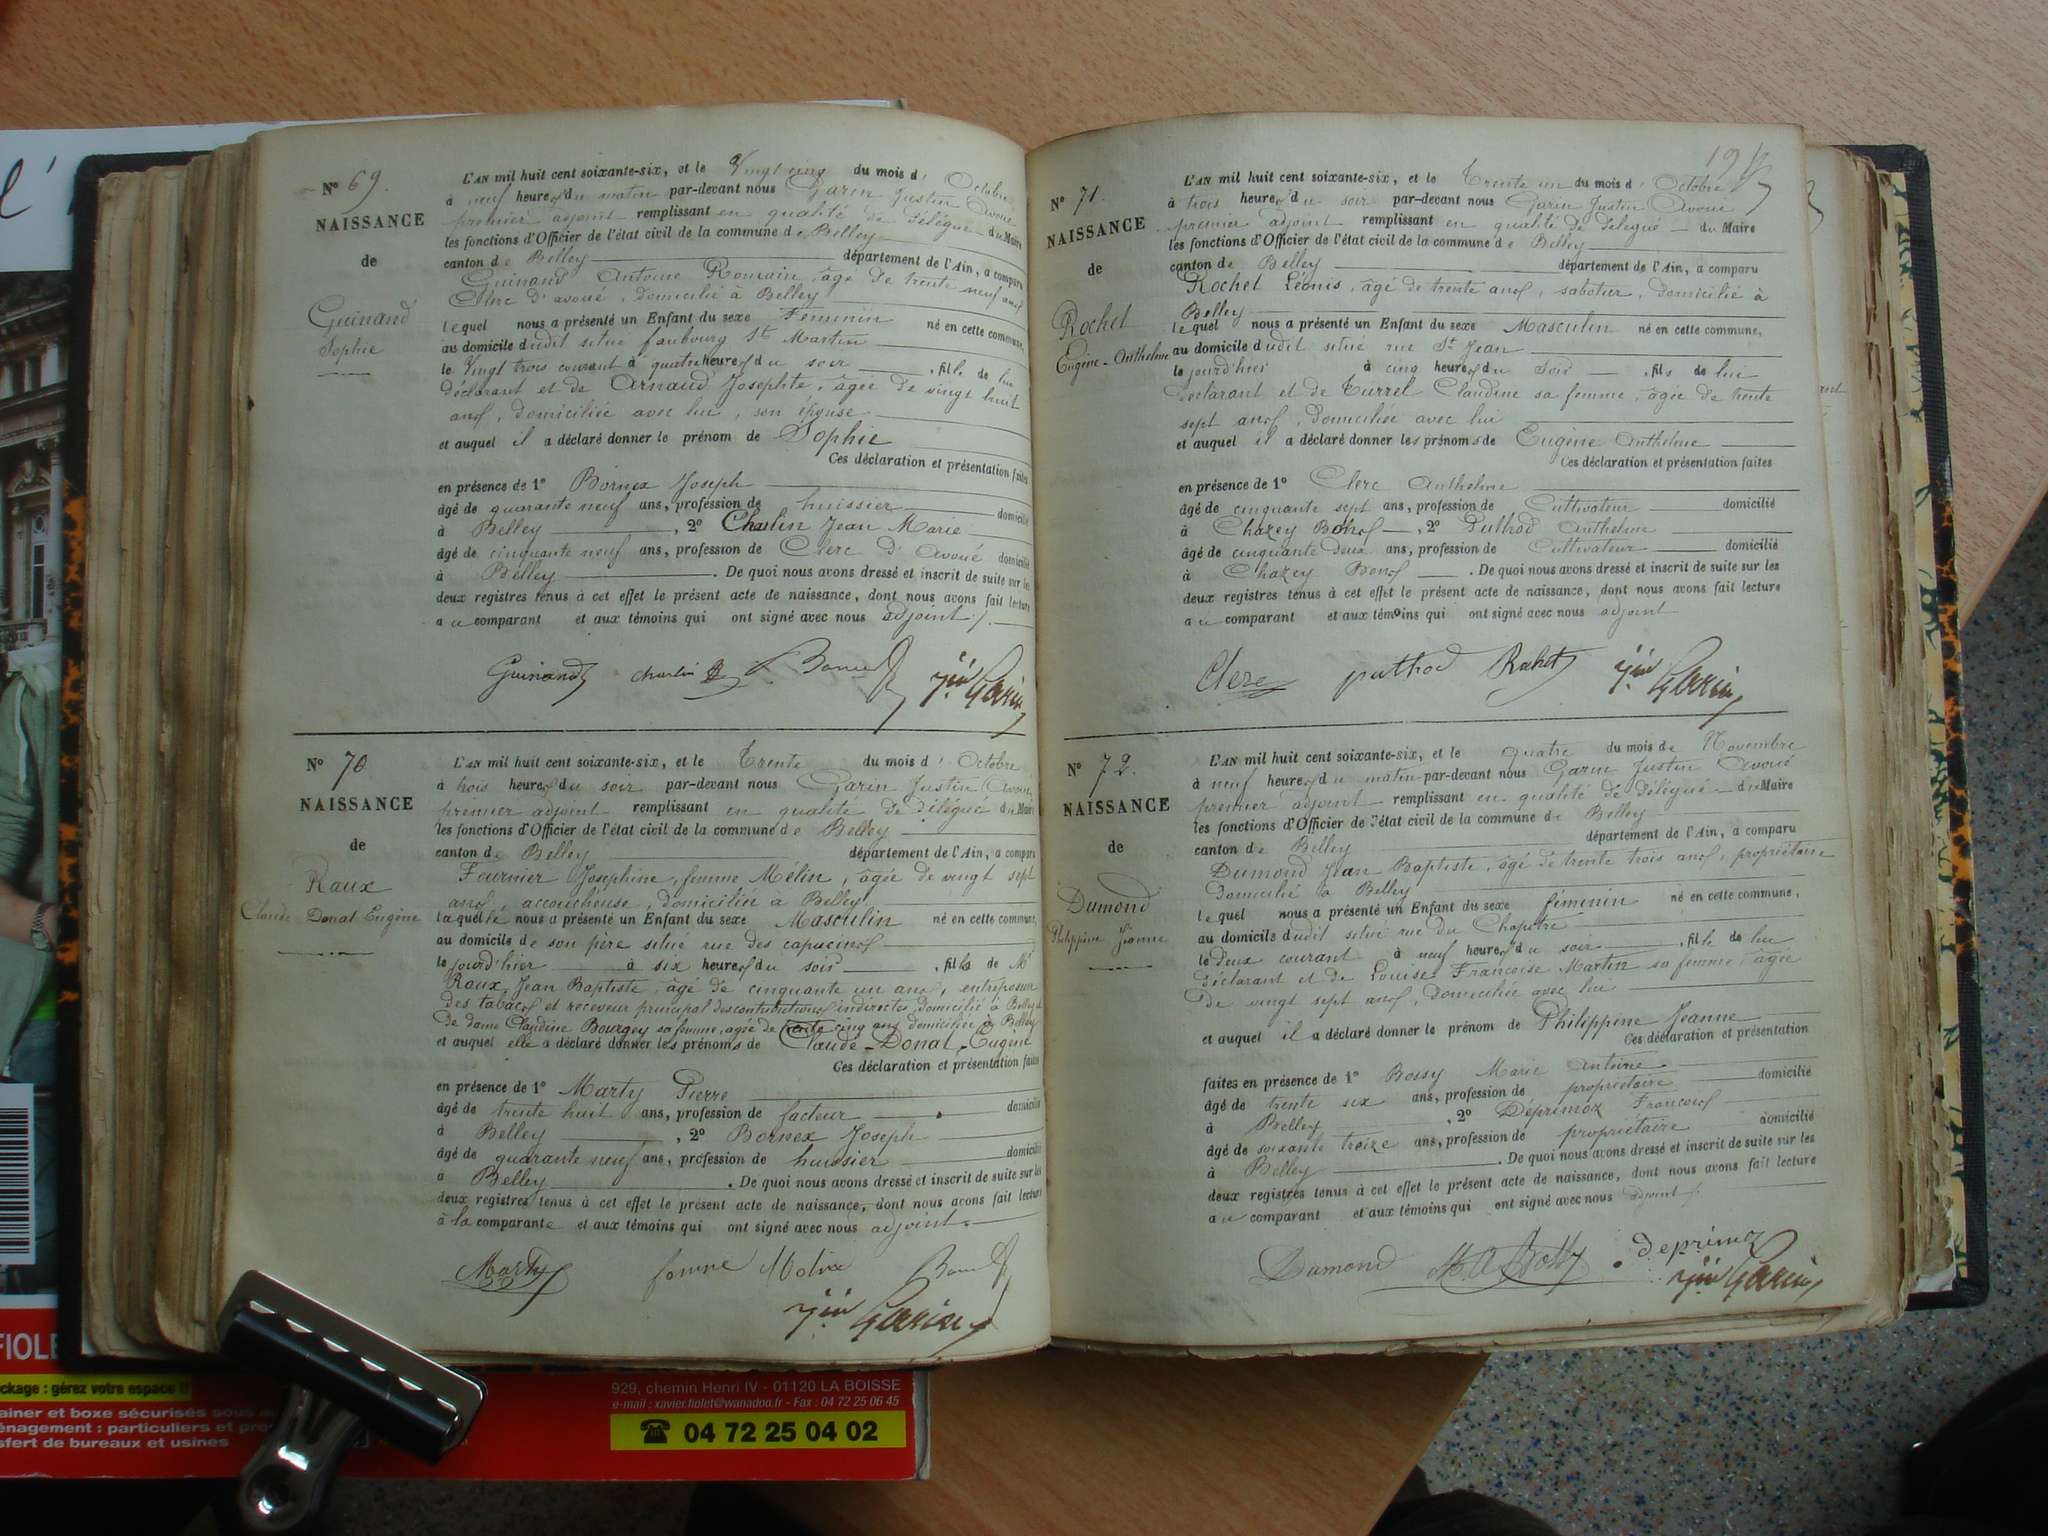 Nº 69.
NAISSANCE
de
Guinand
Sophie
L'AN mil huit cent soixante-six, et le Vingt cinq du mois d'Octobre
à neuf heures du matin par-devant nous Garin Justin Avoué
premier adjoint remplissant en qualité de délégué du Maire
les fonctions d'Officier de l'état civil de la commune de Belley
canton de Belley département de l'Ain, a comparu
Guinand Antoine Romain, âgé de trente neuf ans
Clerc d'avoué, domicilié à Belley
lequel nous a présenté un Enfant du sexe Féminin né en cette commune,
au domicile dudit situé faubourg St Martin
le Vingt trois courant à quatre heures du soir, fille de lui
déclarant et de Arnaud Josephte, âgée de vingt huit
ans, domiciliée avec lui, son épouse
et auquel il a déclaré donner le prénom de Sophie
Ces déclaration et présentation faites
en présence de 1º Bornex Joseph
âgé de quarante neuf ans, profession de huissier domicilié
à Belley, 2º Charlin Jean Marie
âgé de cinquante neuf ans, profession de Clerc d'Avoué domicilié
à Belley. De quoi nous avons dressé et inscrit de suite sur les
deux registres tenus à cet effet le présent acte de naissance, dont nous avons fait lecture
au comparant et aux témoins qui ont signé avec nous adjoint
Guinand charlin J. Bornex Jin Garin
Nº 70
NAISSANCE
de
Raux
Claude Donat Eugène
L'AN mil huit cent soixante-six, et le Trente du mois d'Octobre
à trois heures du soir par-devant nous Garin Justin Avoué
premier adjoint remplissant en qualité de délégué du Maire
les fonctions d'Officier de l'état civil de la commune de Belley
canton de Belley département de l'Ain, a comparu
Fournier Joséphine, femme Mélin, âgée de vingt sept
ans, accoucheuse, domiciliée à Belley
laquelle nous a présenté un Enfant du sexe Masculin né en cette commune,
au domicile de son père situé rue des capucins
le jourd'hier à six heures du soir, fils de Mr
Raux Jean Baptiste, âgé de cinquante un ans, entreposeur
des tabacs et receveur principal des contributions indirectes, domicilié à Belley et
de dame Claudine Bourgey sa femme, agée de trente cinq ans domiciliée à Belley
et auquel elle a déclaré donner les prénoms de Claude-Donat-Eugène
Ces déclaration et présentation faites
en présence de 1º Marty Pierre
âgé de trente huit ans, profession de facteur domicilié
à Belley, 2º Bornex Joseph
âgé de quarante neuf ans, profession de huissier domicilié
à Belley. De quoi nous avons dressé et inscrit de suite sur les
deux registres tenus à cet effet le présent acte de naissance, dont nous avons fait lecture
à la comparante et aux témoins qui ont signé avec nous adjoint.
Marty femme Melin Bornex
Jin Garin
19
Nº 71.
NAISSANCE
de
Rochet
Eugène-Anthelme
L'AN mil huit cent soixante-six, et le Trente un du mois d'Octobre
à trois heures du soir par-devant nous Garin Justin Avoué
premier adjoint remplissant en qualité de délégué du Maire
les fonctions d'Officier de l'état civil de la commune de Belley
canton de Belley département de l'Ain, a comparu
Rochet Léonis, âgé de trente ans, sabotier, domicilié à
Belley
lequel nous a présenté un Enfant du sexe Masculin né en cette commune,
au domicile dudit situé rue St Jean
le jourd'hier à cinq heures du soir, fils de lui
déclarant et de Turrel Claudine sa femme, âgée de trente
sept ans, domiciliée avec lui
et auquel il a déclaré donner les prénoms de Eugène Anthelme
Ces déclaration et présentation faites
en présence de 1º Clerc Anthelme
âgé de cinquante sept ans, profession de Cultivateur domicilié
à Chazey Bons, 2º Puthod Anthelme
âgé de cinquante deux ans, profession de Cultivateur domicilié
à Chazey Bons. De quoi nous avons dressé et inscrit de suite sur les
deux registres tenus à cet effet le présent acte de naissance, dont nous avons fait lecture
au comparant et aux témoins qui ont signé avec nous adjoint
Clerc puthod Rochet Jin Garin
Nº 72.
NAISSANCE
de
Dumond
Philippine Jeanne
L'AN mil huit cent soixante-six, et le quatre du mois de Novembre
à neuf heures du matin par-devant nous Garin Justin Avoué
premier adjoint remplissant en qualité de délégué du Maire
les fonctions d'Officier de l'état civil de la commune de Belley
canton de Belley département de l'Ain, a comparu
Dumond Jean Baptiste, âgé de trente trois ans, propriétaire
domicilié à Belley
lequel nous a présenté un Enfant du sexe féminin né en cette commune,
au domicile dudit situé rue du Chapitre
le deux courant à neuf heures du soir, fille de lui
déclarant et de Louise Françoise Martin sa femme, âgée
de vingt sept ans, domiciliée avec lui
et auquel il a déclaré donner le prénom de Philippine Jeanne
Ces déclaration et présentation
faites en présence de 1º Bossy Marie Antoine
âgé de trente six ans, profession de propriétaire domicilié
à Belley, 2º Déprimoz François
âgé de soixante treize ans, profession de propriétaire domicilié
à Belley. De quoi nous avons dressé et inscrit de suite sur les
deux registres tenus à cet effet le présent acte de naissance, dont nous avons fait lecture
au comparant et aux témoins qui ont signé avec nous adjoint
Dumond M. A. Bossy deprimoz
Jin Garin
FIOLE
ckage : gérez votre espace !!
ainer et boxe sécurisés sous
énagement : particuliers et pro
sfert de bureaux et usines
929, chemin Henri IV - 01120 LA BOISSE
e-mail : xavier.fiolet@wanadoo.fr - Fax : 04 72 25 06 45
☎ 04 72 25 04 02